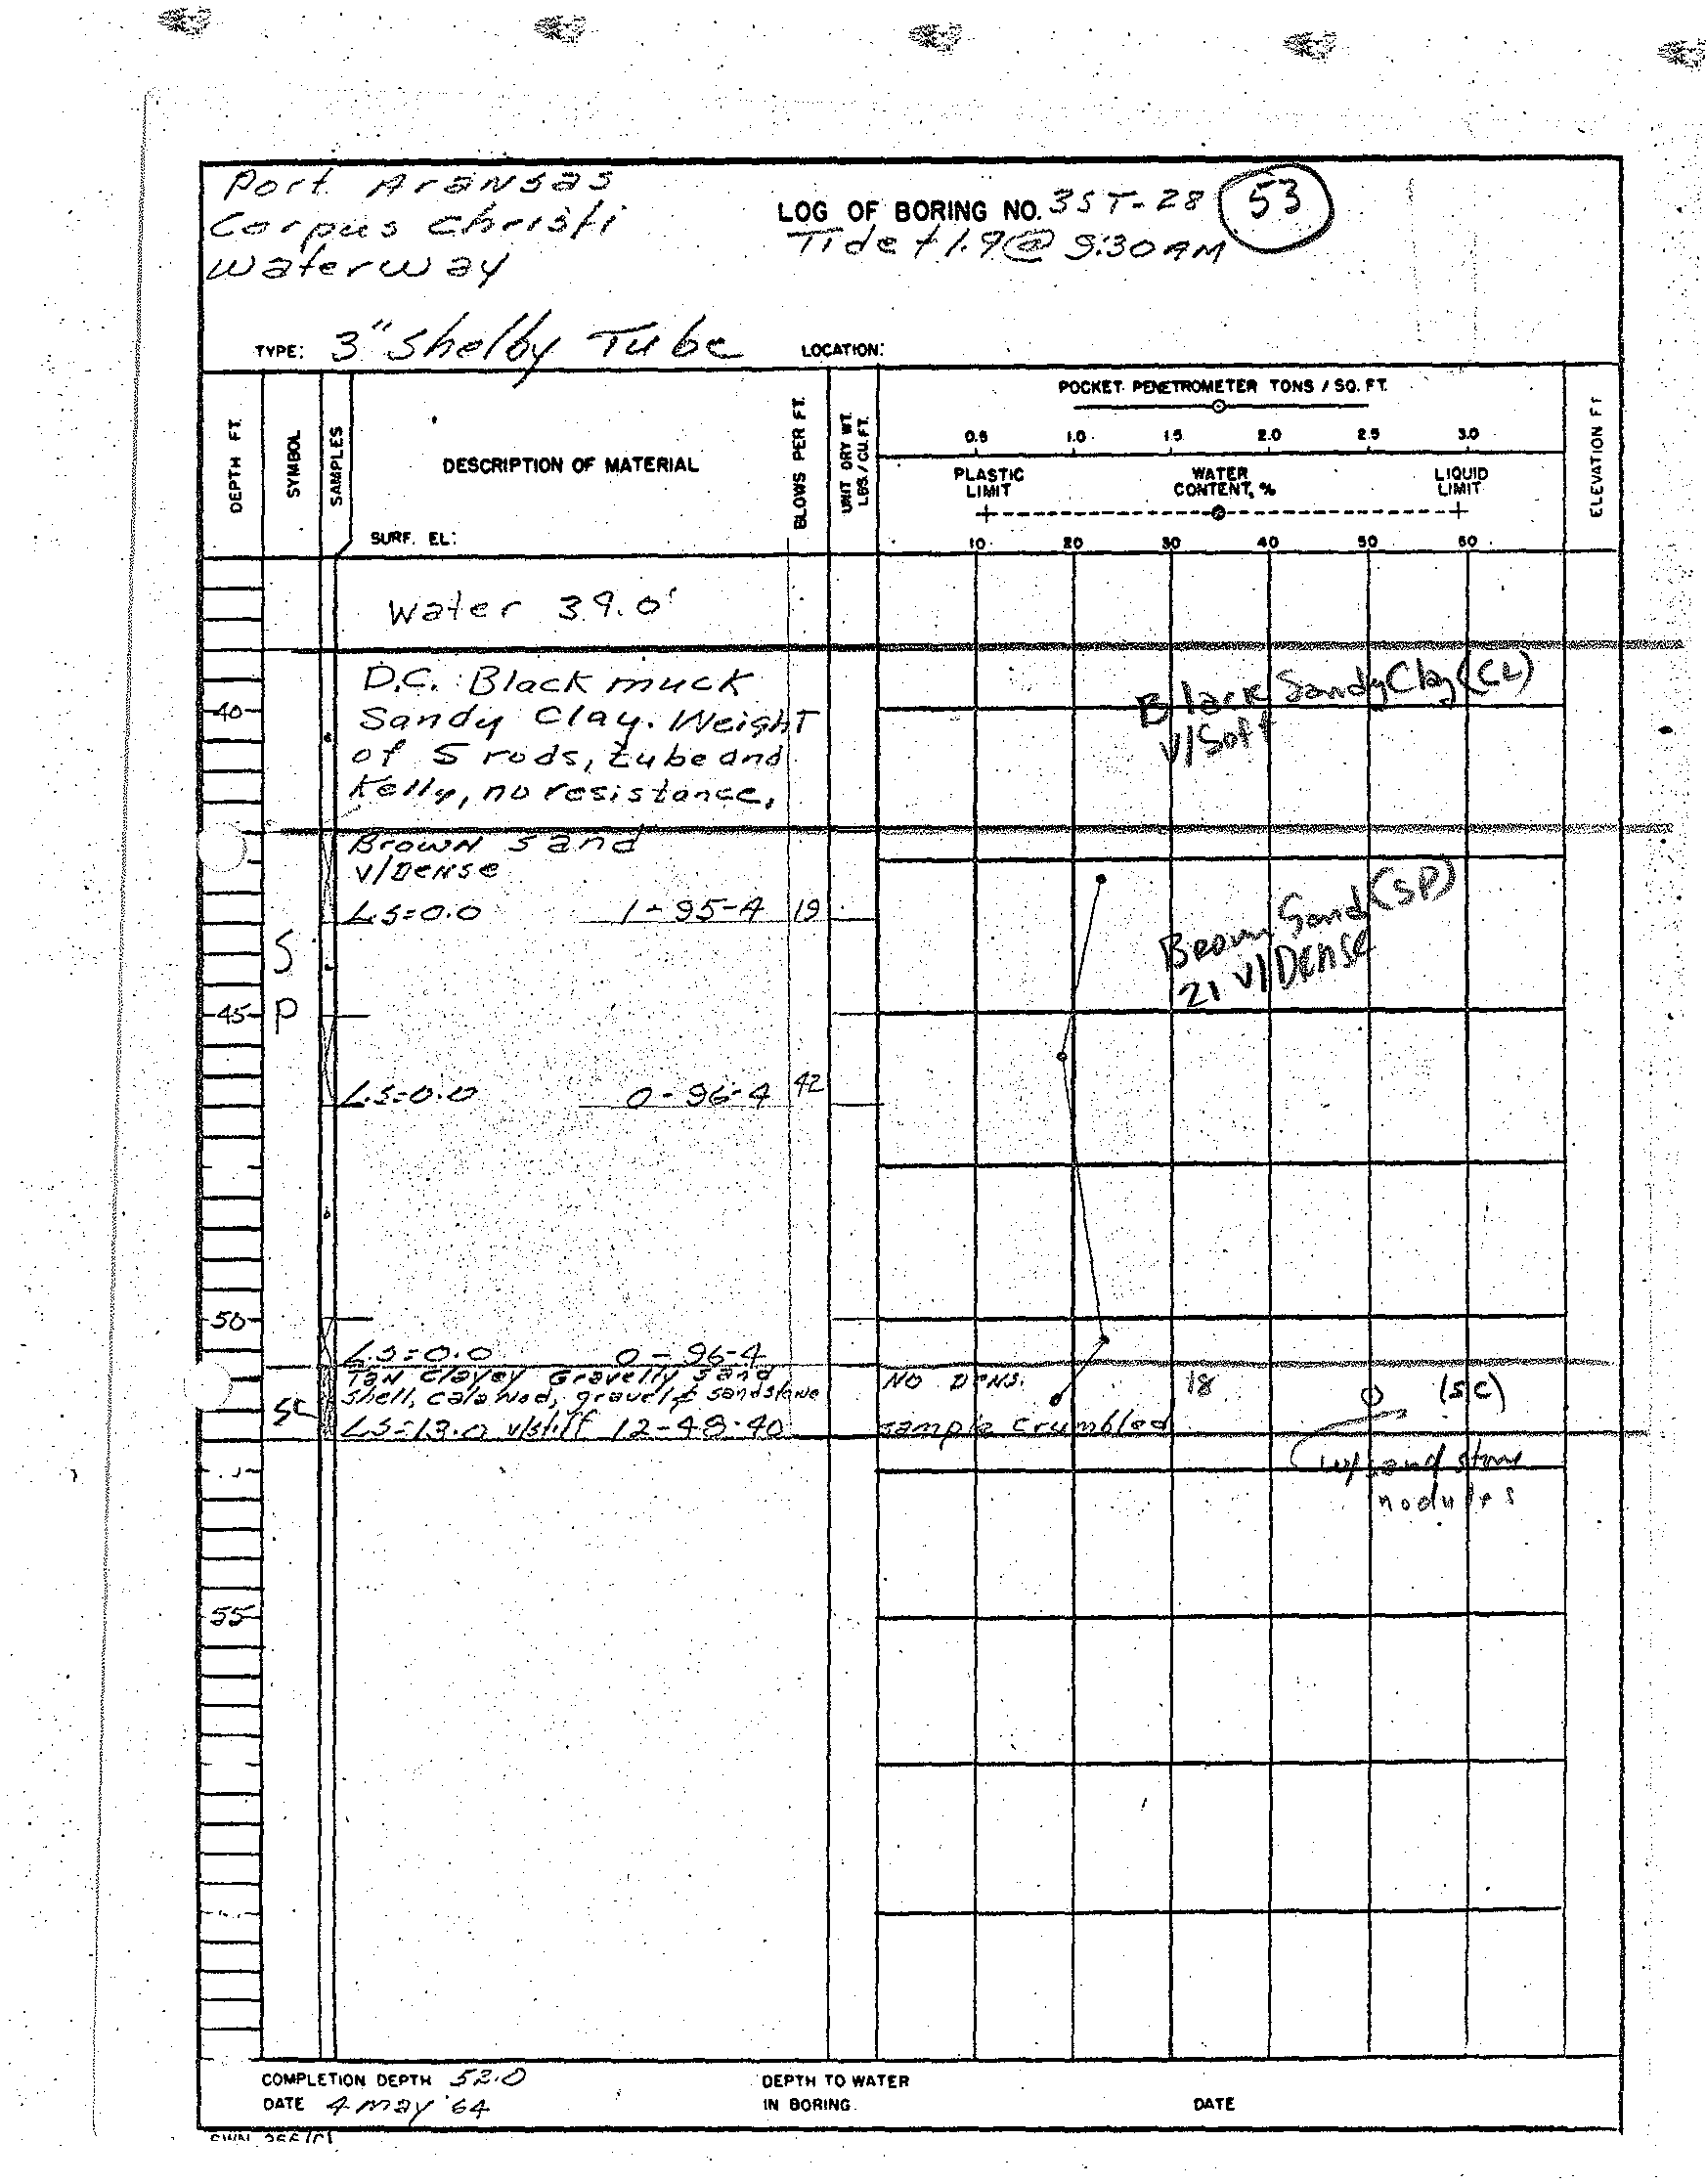 Port Aransas
Corpus Christi
Waterway
LOG OF BORING NO. 3ST-28 53
Tide +1.9@ 9:30AM
TYPE: 3" Shelby Tube LOCATION:
DEPTH FT.
SYMBOL
SAMPLES
DESCRIPTION OF MATERIAL
SURF. EL:
BLOWS PER FT.
UNIT DRY WT.
LBS. / CU. FT.
POCKET PENETROMETER TONS / SQ. FT.
0.5 1.0 1.5 2.0 2.5 3.0
PLASTIC LIMIT
WATER CONTENT, %
LIQUID LIMIT
10 20 30 40 50 60
ELEVATION FT
Water 39.0'
D.C. Black muck
Sandy Clay. Weight
of 5 rods, tube and
Kelly, no resistance,
Black Sandy Clay (CL)
v/Soft
40
Brown Sand
v/Dense
LS=0.0 1-95-4 19
Brown Sand (SP)
21 v/Dense
S
P
45
L.S=0.0 0-96-4 42
50
L.S=0.0 0-96-4
Tan Clayey Gravelly Sand
Shell, gravel & sandstone
LS=13.0 v/stiff 12-48-40
SC
NO DENS. 18 (SC)
sample crumbled
w/sand stone
nodules
55
COMPLETION DEPTH 52.0
DATE 4 May '64
DEPTH TO WATER
IN BORING.
DATE